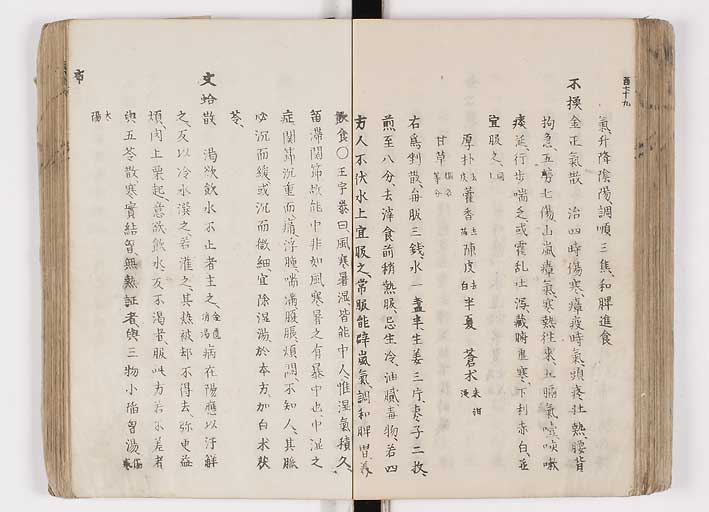 氣升降陰陽調順三焦和脾進食
不換金正氣散 治四時傷寒瘴疫時氣頭疼壯熱腰背
拘急五勞七傷山嵐瘴氣寒熱往來五膈氣噎咳嗽
痰涎行步喘乏或霍乱吐泻藏腑虚寒下利赤白並
宜服之
厚朴 藿香 陳皮去白 半夏 蒼朮米泔浸
甘草 等分
右為剉散每服三錢水一盞半生姜三片棗子二枚
煎至八分去滓食前稍熱服忌生冷油膩毒物若四
方人不伏水上宜服之常服能辟嵐氣調和脾胃美
飲食〇王宇泰曰風寒暑湿皆能中人惟湿氣積久
留滞関節故能中非如風寒暑之有暴中也中湿之
症関節沉重而痛浮腫喘満腹脹煩悶不知人其脈
必沉而緩或沉而微細宜除湿湯於本方加白朮茯
苓
文蛤散 渇欲飲水不止者主之 病在陽應以汗解
之反以冷水潠之若灌之其熱被却不得去弥更益
煩肉上粟起意欲飲水反不渇者服此方若不差者
與五苓散寒實結胷無熱証者與三物小陥胷湯
太陽